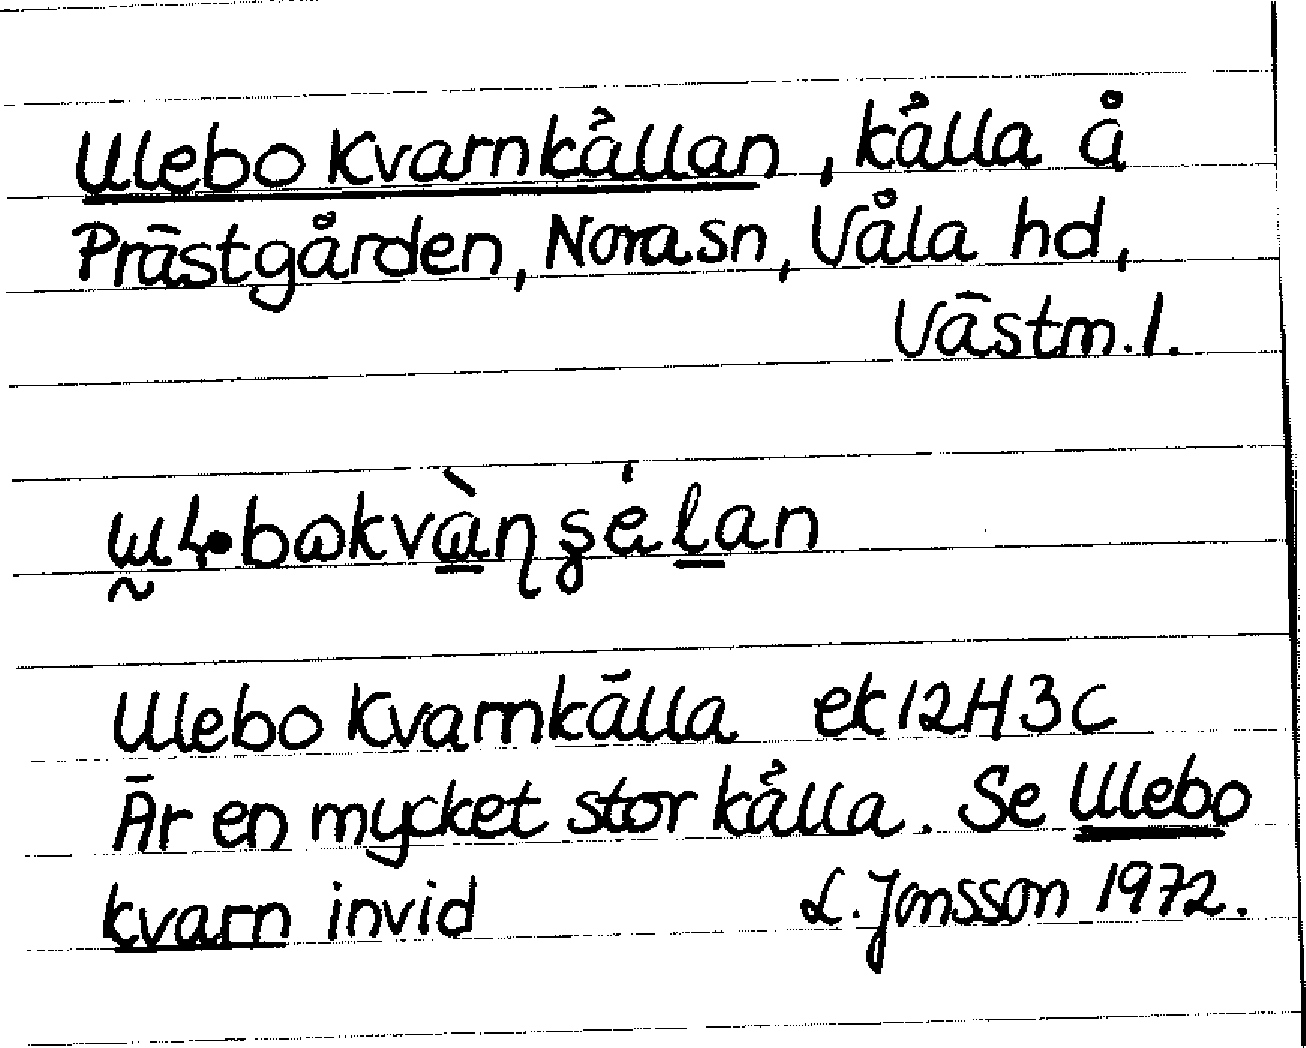 Ulebo Kvarnkällan, källa å
Prästgården, Nora sn, Våla hd,
Västm. l.
Ulebo Kvarnkälla ek 12H3c
Är en mycket stor källa. Se Ulebo
kvarn invid L. Jonsson 1972.